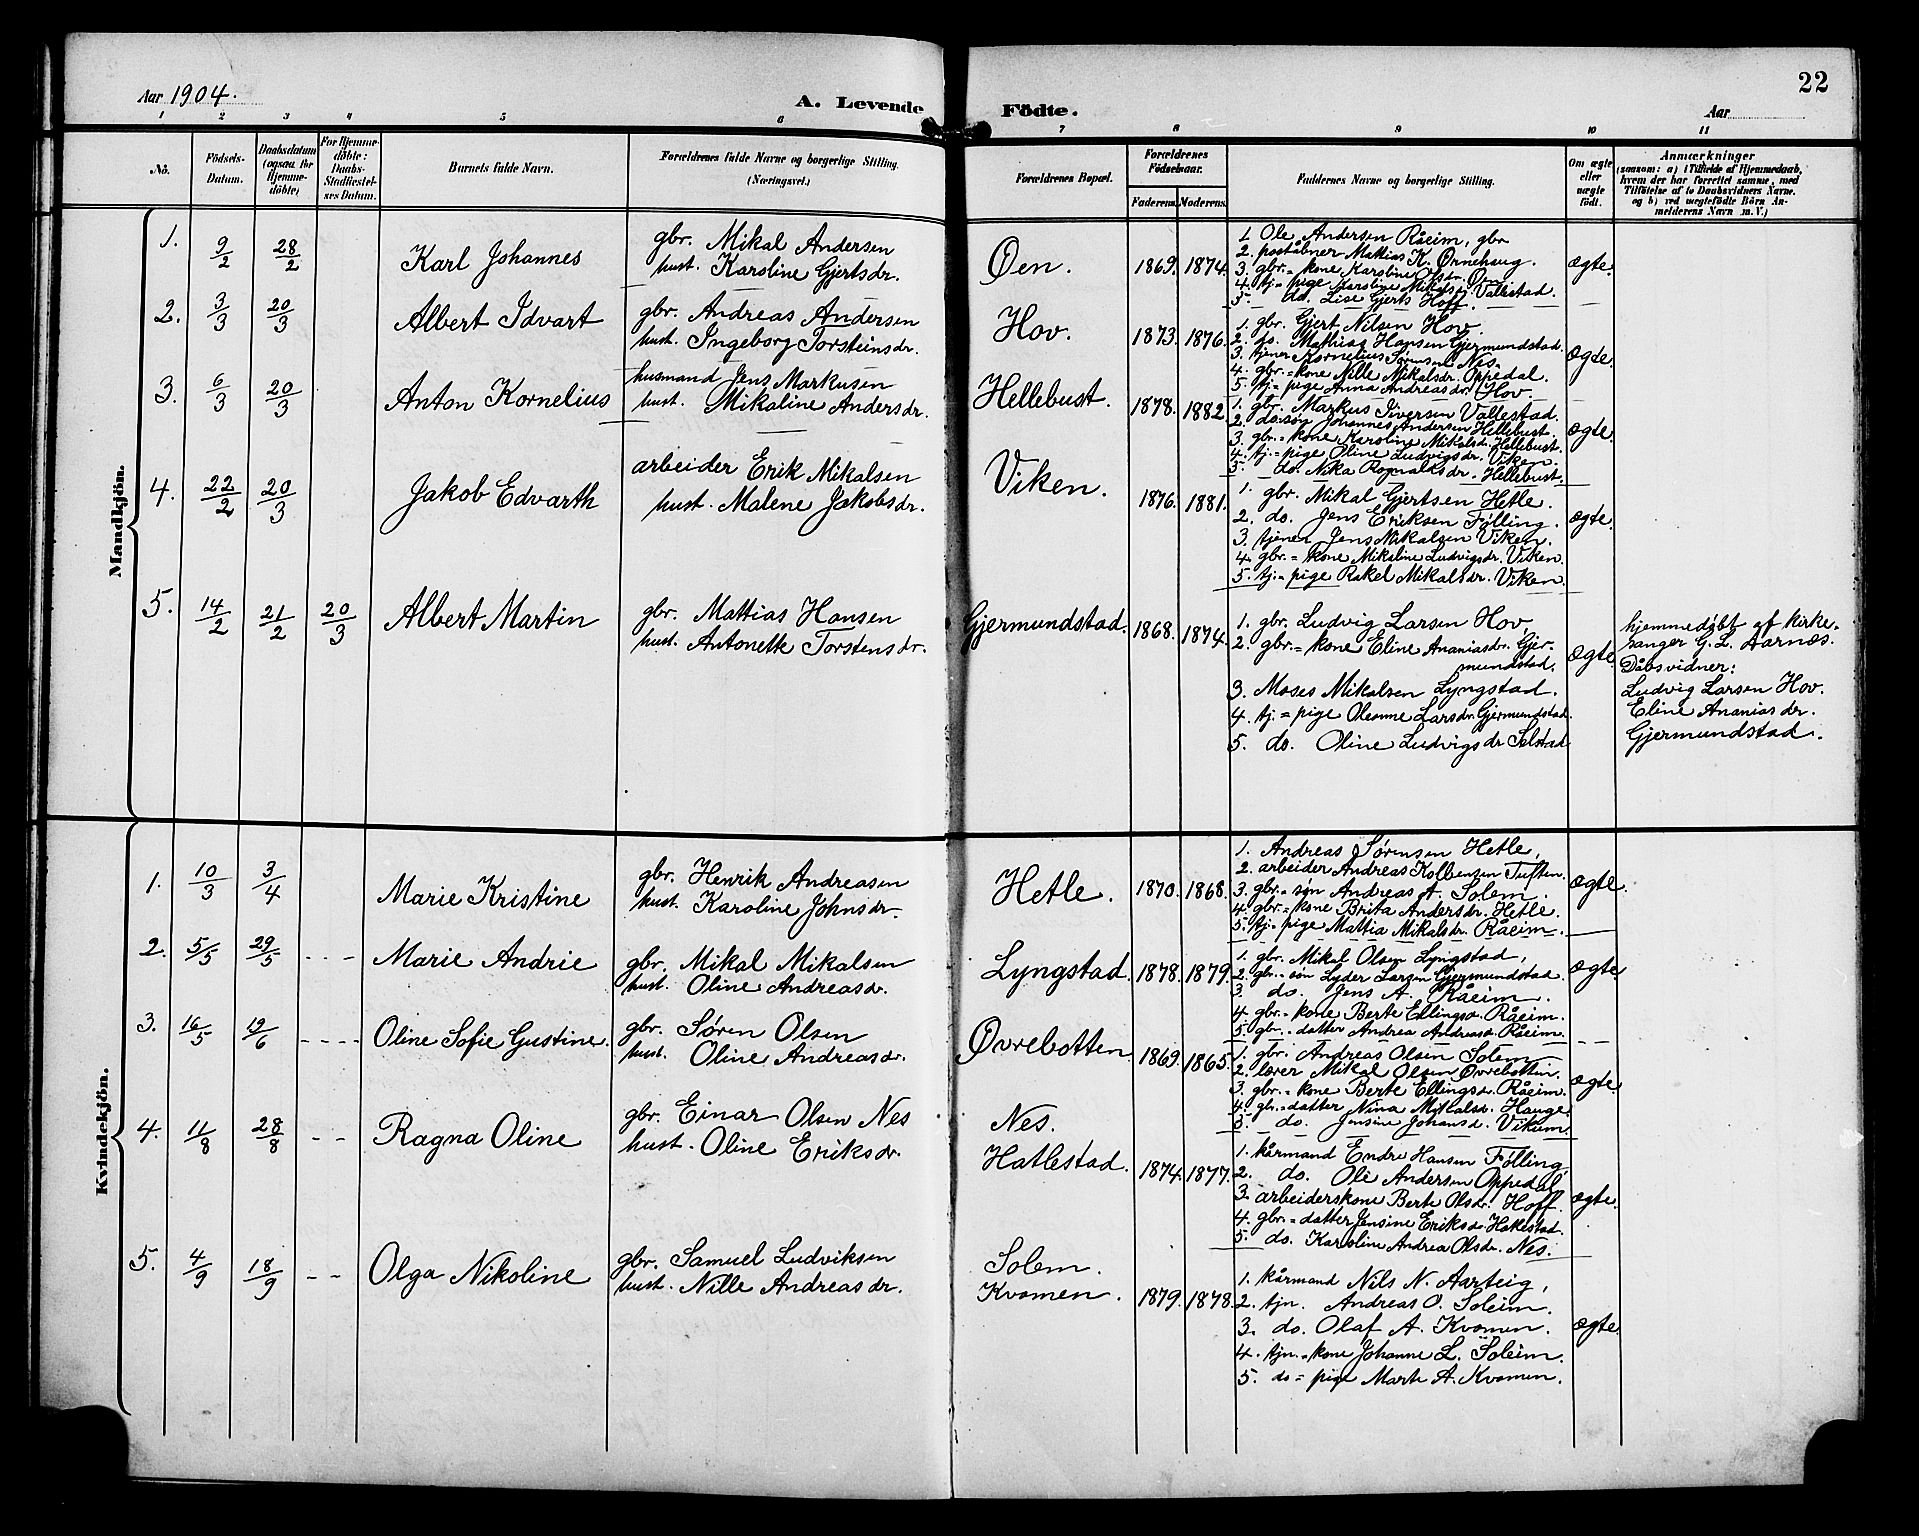 Aar 1904.
A. Levende
Födte.
Aar
22
1 2 3 4 5 6 7 8 9 10 11
No.
Födsels-Datum.
Daabsdatum (ogsaa for Hjemmedöbte)
For Hjemmedöbte: Daabs-Stadfæstelses Datum.
Barnets fulde Navn.
Forældrenes fulde Navne og borgerlige Stilling.
(Næringsvei.)
Forældrenes Bopæl.
Forældrenes Födselsaar.
Faderens.
Moderens.
Faddernes Navne og borgerlige Stilling.
Om ægte eller uægte födt.
Anmærkninger
(saasom: a) i Tilfælde af Hjemmedaab, hvem der har forrettet samme, med Tilföielse af to Daabsvidners Navne, og b) ved uægtefödte Börn Anmelderens Navn m. V.)
Mandkjön.
1. 9/2 28/2 Karl Johannes
gbr. Mikal Andersen
hust. Karoline Gjertsdr.
Øen. 1869. 1874.
1. Ole Andersen Råeim, gbr
2. poståbner Mathias K. Ørnehaug.
3. gbr.= kone Karoline Olsdr. Øen
4. tj.= pige Karoline Mikalsdr. Vallestad.
5. do. Lise Gjerts Hoff.
ægte.
2. 3/3 20/3 Albert Idvart
gbr. Andreas Andersen
hust. Ingeborg Torsteinsdr.
Hov. 1873. 1876.
1. gbr. Gjert Nilsen Hov.
2. do. Mathias Hansen Gjermundstad.
3. tjener Kornelius Sørensen Nes.
4. gbr.= kone Nille Mikalsdr. Oppedal.
5. tj.= pige Anna Andreasdr. Hov.
ægte.
3. 6/3 20/3 Anton Kornelius
husmand Jens Markusen
hust. Mikaline Andersdr.
Hellebust. 1878. 1882.
1. gbr. Markus Iversen Vallestad.
2. do. søn Johannes Andersen Hellebust.
3. gbr.= kone Karoline Mikalsdr. Hellebust.
4. tj.= pige Oline Ludvigsdr. Viken.
5. do. Nika Rognaldsdr. Hellebust.
ægte.
4. 22/2 20/3 Jakob Edvarth
arbeider Erik Mikalsen
hust. Malene Jakobsdr.
Viken. 1876. 1881.
1. gbr. Mikal Gjertsen Hetle.
2. do. Jens Eriksen Følling.
3. tjener Jens Mikalsen Viken.
4. gbr.= kone Mikaline Ludvigsdr. Viken
5. tj.= pige Rakel Mikalsdr. Viken.
ægte.
5. 14/2 21/2 20/3 Albert Martin
gbr. Mattias Hansen
hust. Antonette Torstensdr.
Gjermundstad. 1868. 1874.
1. gbr. Ludvig Larsen Hov,
2. gbr.= kone Eline Ananiasdr. Gjer-
mundstad.
3. Moses Mikalsen Lyngstad.
4. tj.= pige Oleanne Larsdr. Gjermundstad.
5. do. Oline Ludvigsdr Selstad
ægte.
hjemmedøbt af kirke-
sanger G. L. Aarnæs.
Dåbsvidner:
Ludvig Larsen Hov.
Eline Ananiasdr.
Gjermundstad.
Kvindekjön.
1. 10/3 3/4 Marie Kristine
gbr. Henrik Andreasen
hust. Karoline Johnsdr.
Hetle. 1870. 1868.
1. Andreas Sørensen Hetle,
2. arbeider Andreas Kolbensen Tuften.
3. gbr.= søn Andreas A. Solem.
4. gbr.= kone Brita Andersdr. Hetle.
5. tj.= pige Mattia Mikalsdr. Råeim.
ægte.
2. 5/5 29/5 - - - Marie Andrie
gbr. Mikal Mikalsen
hust. Oline Andreasdr.
Lyngstad. 1878. 1879.
1. gbr. Mikal Olsen Lyngstad,
2. gbr.= søn Lyder Larsen Gjermundstad.
3. do. Jens A. Råeim.
4. gbr.= kone Berte Ellingsdr. Råeim.
5. gbr.= datter Andrea Andreasdr. Råeim.
ægte.
3. 16/5 19/6 - - - - Oline Sofie Gustine.
gbr. Søren Olsen
hust. Oline Andreasdr.
Øvrebotten 1869. 1865.
1. gbr. Andreas Olsen Solem
2. lærer Mikal Olsen Øvrebotten.
3. gbr.= kone Berte Ellingsdr. Råeim.
4. gbr.= datter Nina Mikalsdr. Hauge.
5. do. Jensine Johansdr. Vikum.
ægte.
4. 11/8 28/8 - - Ragna Oline
gbr. Einar Olsen Nes
hust. Oline Eriksdr.
Nes.
Hatlestad. 1874. 1877.
1. kårmand Endre Hansen Følling,
2. do. Ole Andersen Oppedal,
3. arbeiderskone Berte Olsdr. Hoff.
4. gbr.= datter Jensine Eriksdr. Hatlestad.
5. do. Karoline Andrea Olsdr. Nes.
ægte.
5. 4/9 18/9 - - Olga Nikoline
gbr. Samuel Ludviksen
hust. Nille Andreasdr.
Solem.
Kvamen. 1879. 1878.
1. kårmand Nils N. Aarteig,
2. tjn. Andreas O. Soleim.
3. do. Olaf A. Kvamen.
4. tjn.= kone Johanne L. Soleim.
5. do = pige Marte A. Kvamen.
ægte.